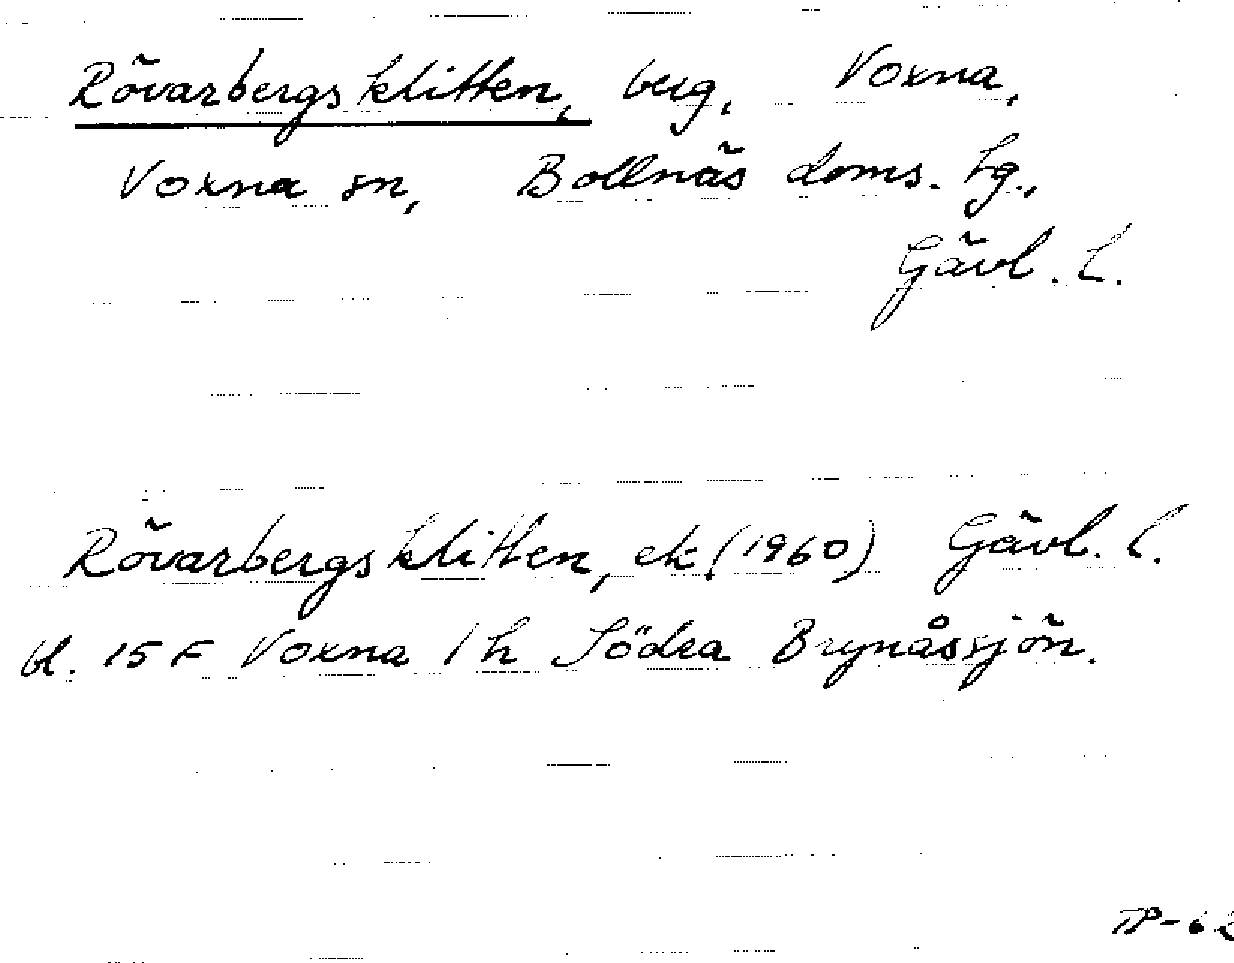 Rövarbergsklitten, berg, Voxna,
Voxna sn, Bollnäs doms. hg.,
Gävl. l.
Rövarbergsklitten, ek. (1960) Gävl. l.
bl. 15 F Voxna 1 h Södra Brynåssjön.
TP-62